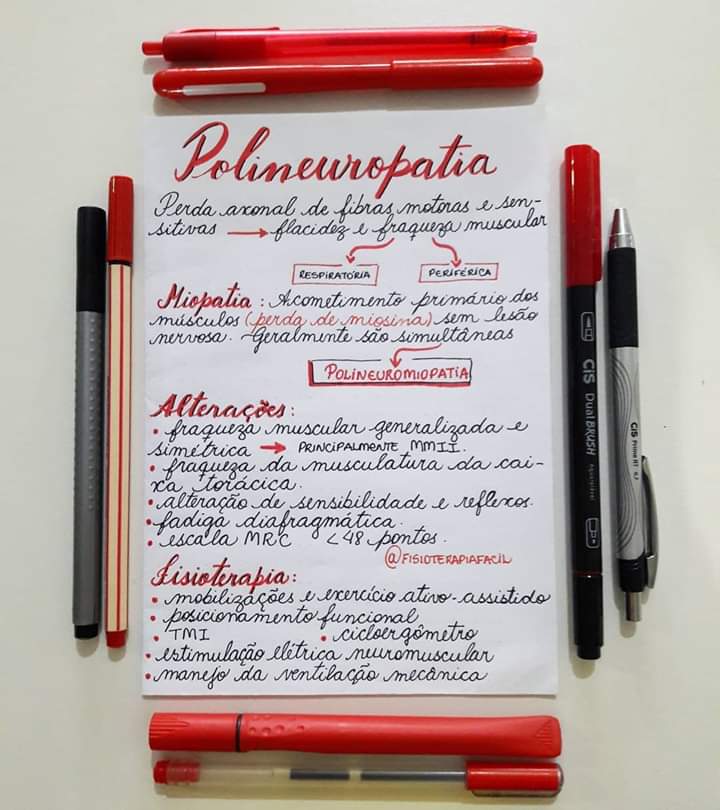 Polineuropatia
Perda axonal de fibras motoras e sen-
sitivas → flacidez e fraqueza muscular
RESPIRATÓRIA PERIFÉRICA
Miopatia: Acometimento primário dos
músculos (perda de miosina) sem lesão
nervosa. Geralmente são simultâneas
POLINEUROMIOPATIA
Alterações:
• fraqueza muscular generalizada e
simétrica → PRINCIPALMENTE MMII.
• fraqueza da musculatura da cai-
xa torácica.
• alteração de sensibilidade e reflexos.
• fadiga diafragmática.
• escala MRC <48 pontos.
@FISIOTERAPIAFACIL
Fisioterapia:
• mobilizações e exercício ativo-assistido
• posicionamento funcional
• TMI • cicloergômetro
• estimulação elétrica neuromuscular
• manejo da ventilação mecânica
CiS Dual BRUSH
CiS